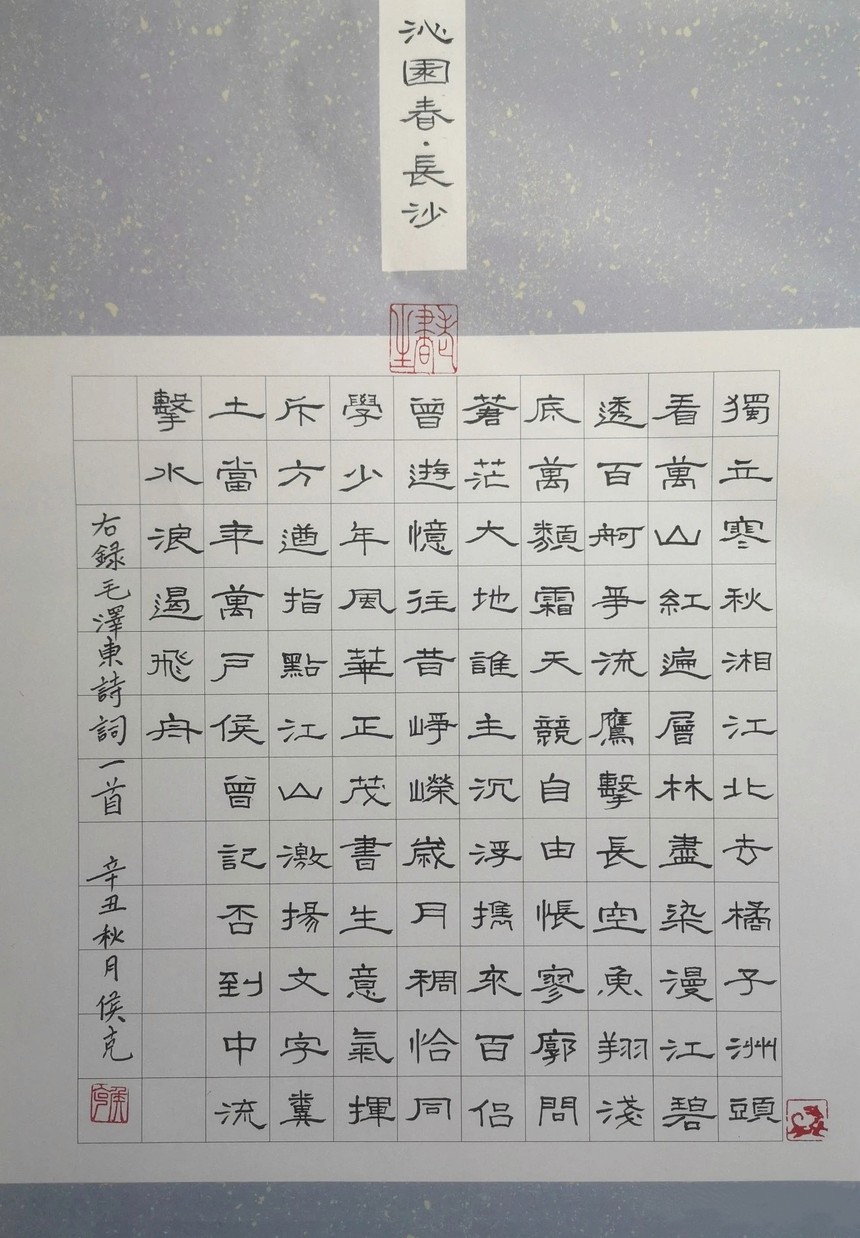 沁園春·長沙
獨立寒秋湘江北去橘子洲頭
看萬山紅遍層林盡染漫江碧
透百舸爭流鷹擊長空魚翔淺
底萬類霜天競自由悵寥廓問
蒼茫大地誰主沉浮擕來百侶
曾遊憶往昔崢嶸歲月稠恰同
學少年風華正茂書生意氣揮
斥方遒指點江山激揚文字糞
土當年萬戶侯曾記否到中流
擊水浪遏飛舟
右錄毛澤東詩詞一首 辛丑秋月侯克